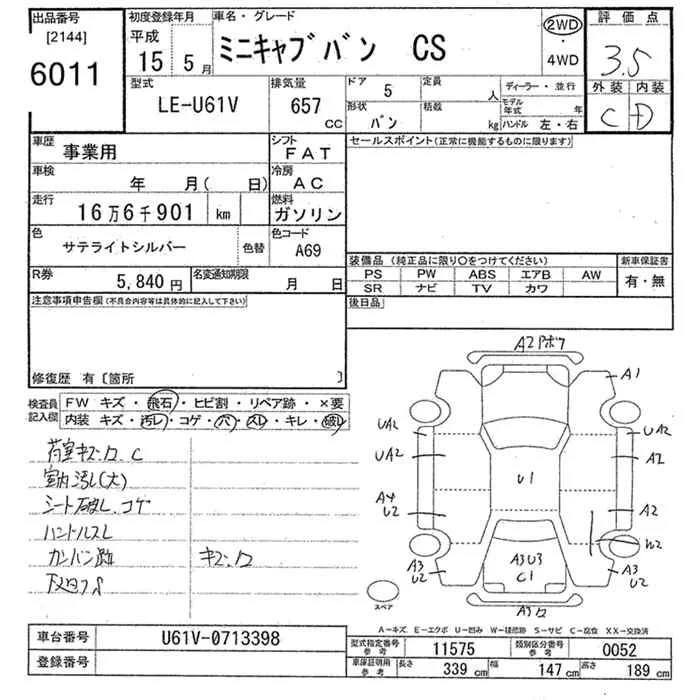 出品番号 初度登録年月 車名・グレード 評価点
[2144] 平成 ミニキャブバン CS 2WD・4WD 3.5
6011 15年 5月 外装 内装
型式 排気量 ドア 5 定員 人 ディーラー・並行 C D
LE-U61V 657 CC 形状 バン 積載 kg モデル年式 年 ハンドル 左・右
車歴 事業用 シフト FAT セールスポイント(正常に機能するものに限ります)
車検 年 月( 日) 冷房 AC
走行 16万6千901 km 燃料 ガソリン
色 サテライトシルバー 色替 色コード A69
装備品(純正品に限り○をつけてください) 新車保証書
R券 5,840円 名変通知期限 月 日 PS PW ABS エアB AW 有・無
SR ナビ TV カワ
注意事項申告欄(不具合内容等は具体的に記入して下さい) 後日品
修復歴 有〔箇所 〕
検査員記入欄 FW キズ・飛石・ヒビ割・リペア跡・×要
内装 キズ・汚レ・コゲ・穴・スレ・キレ・破レ
荷室キズ.ワ C
室内汚レ(大)
シート破レ.コゲ
ハンドルスレ
カンバン跡 キズ.ワ
A2 Pボワ
A1
UA2 UA2
UA2 A2
U1
A4 U2 A2
W2
A3 U2 A3U3 C1 A3 U2
スペア A3ワ
A-キズ E-エクボ U-凹み W-補修跡 S-サビ C-腐食 XX-交換済
車台番号 U61V-0713398 型式指定番号 参考 11575 類別区分番号 参考 0052
登録番号 車庫証明用 参考 長さ 339 cm 幅 147 cm 高さ 189 cm